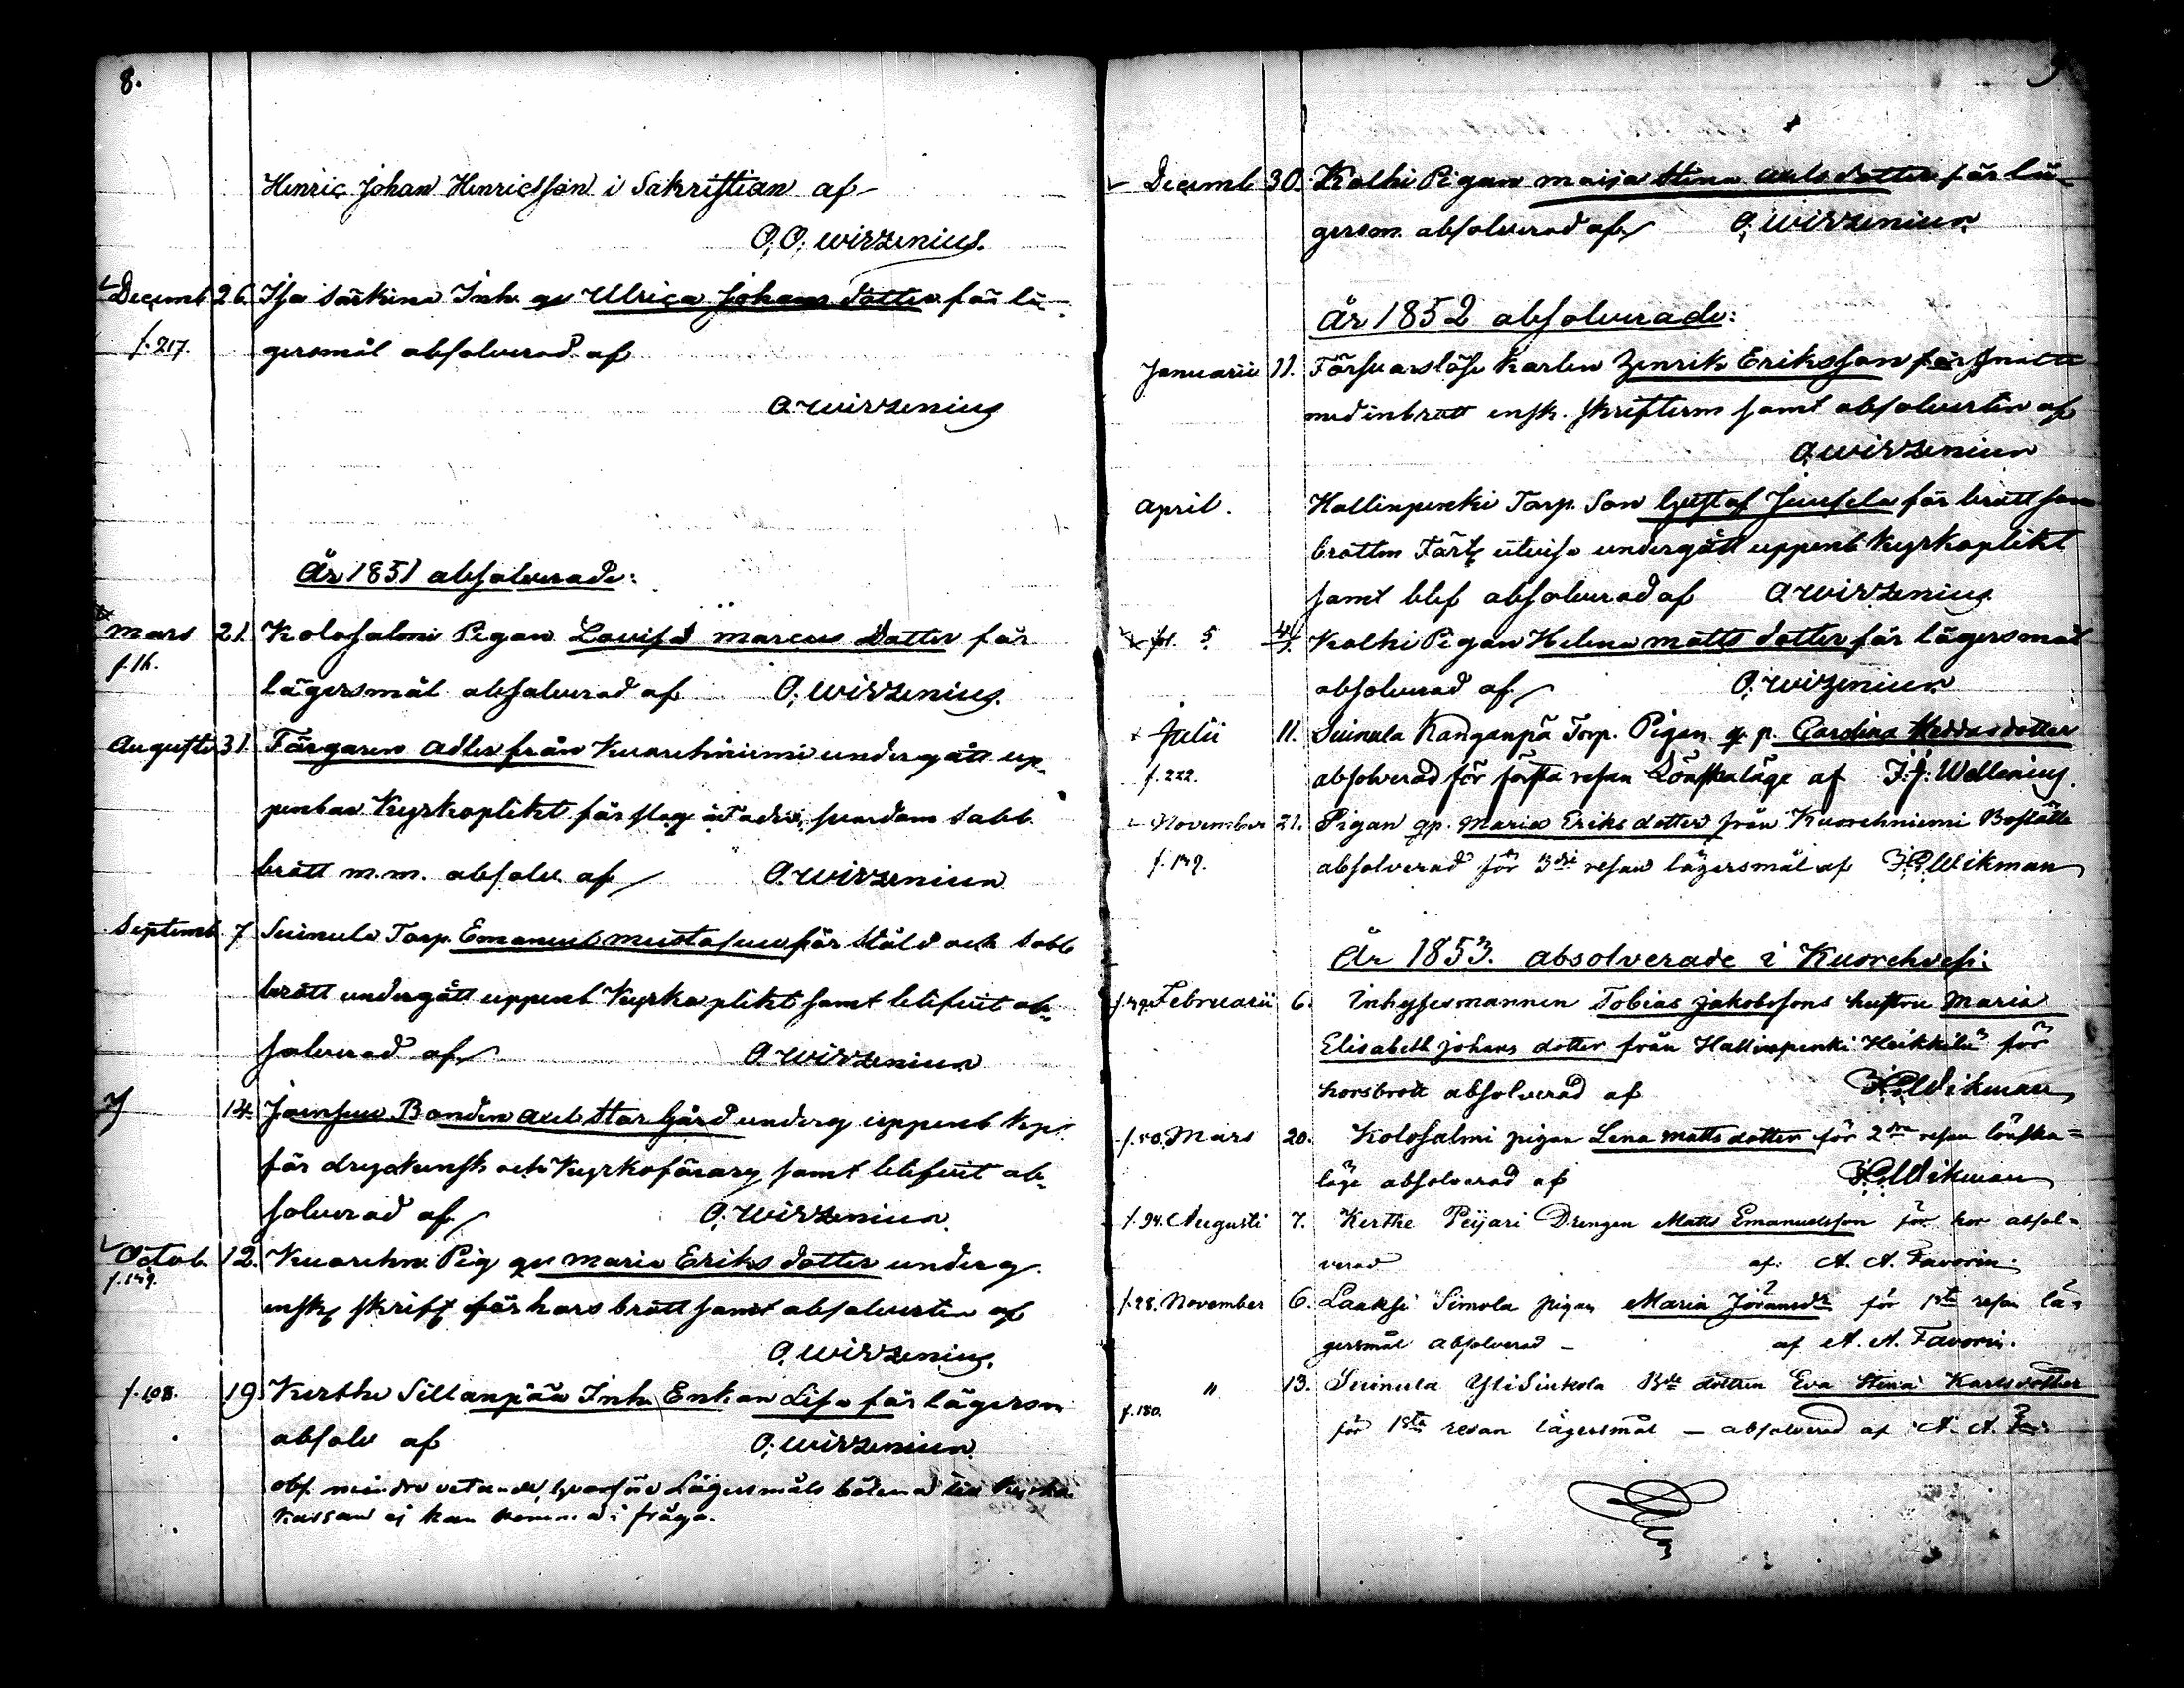 8.
Henric Johan Henricsson i Sakristian af
O. O. Wirzenius.
Decemb 26. Isa Särkine Inh. qv Ulrica Johans dotter för lä-
f. 217. gersmål absolverad af
O. Wirzenius
År 1851 absolverade:
Mars 21. Kolosalmi Pigan Lovisa Marcus Dotter för
f. 16.
lägersmål absolverad af O. Wirzenius.
Augusti 31. Färgaren Adler från Kuorehniemi undergått up-
penbar Kyrkoplikt för slag åt svordom sabb
brott m.m. absolv. af O. Wirzenius
Septemb. 7 Suinula Torp. Emanuel för stöld och sabb
brott undergått uppenb Kyrkoplikt samt blifvit ab-
solverad af O. Wirzenius
14. Bonden Axel underg uppenb Kp.
för dryckensk och Kyrkoförarg samt blifvit ab-
solverad af O. Wirzenius
Octob. 12. Kuorehn. Pig qv Maria Eriks dotter underg
f. 149.
ensk skrift för hors brott samt absolverten af
O. Wirzenius.
f. 108. 19 Kerthe Sillanpää Inh. Enkan Lisa för lägersm
absolv af O. Wirzenius
obs. mindre vetande, hvarföre Lägersmåls böterna till Kyrko
Kassan ej kan komma i fråga.
9
Decemb 30. Kolhi Pigan Maija Stina Axels dotter för lä-
gersm. absolverad af O. Wirzenius
År 1852 absolverade:
Januarii 11. Försvarslöse Karlen Henrik Eriksson för
med inbrott ensk. skrifterm samt absolverten af
O. Wirzenius
April. Hallinpenki Torp. Son Gustaf för brott
brotten undergått uppenb Kyrkoplikt
samt blef absolverad af O. Wirzenius
5 4. Kolhi Pigan Helena Matts dotter för lägersmål
absolverad af O. Wirzenius
Julii 11. Suinula Kanganpä Torp. Pigan q. p. Carolina Heddasdotter
f. 222. absolverad för första resan Lönskaläge af J: J: Wallenius.
November 21. Pigan qp. Maria Eriks dotter från Kuorehniemi Boställe
f. 149. absolverad för 3dje resan lägersmål af H. Wikman
År 1853. absolverade i Kuorehvesi:
f. 49. Februarii 6. Inhysesmannen Tobias Jakobssons hustru Maria
Elisabeth Johans dotter från Hallinpenki Heikkilä för
horsbrott absolverad af H. Wikman
f. 50. Mars 20. Kolosalmi pigan Lena Matts dotter för 2dra resan lönska=
läge absolverad af H. Wikman
f. 94. Augusti 7. Kerthe Peijari Drengen Matts Emanuelsson för hor absol-
verad af. A. A. Favorin.
f. 28. November 6. Laaksi Simola pigan Maria Göransdr för 1sta resan lä-
gersmål absolverad – af A. A. Favorin.
" 13. Suinula Yli Siukola Bde dottren Eva Stina Karls dotter
f. 180.
för 1sta resan lägersmål – absolverad af A. A. Fav.